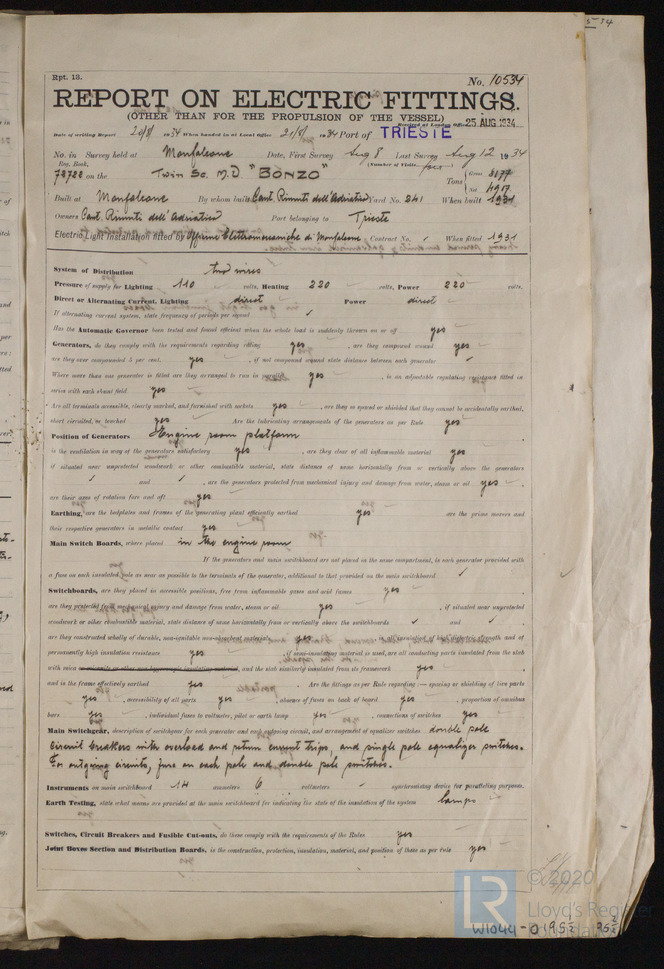 5 34
Rpt. 13.
No. 10534
REPORT ON ELECTRIC FITTINGS.
(OTHER THAN FOR THE PROPULSION OF THE VESSEL)
Received at London Office 25 AUG 1934
Date of writing Report 20/8/ 1934 When handed in at Local Office 20/8/ 1934 Port of TRIESTE
No. in Survey held at Monfalcone Date, First Survey Aug 8 Last Survey Aug 12 1934
Reg. Book. (Number of Visits four)
78722 on the Twin Sc. M.D "BONZO" Tons { Gross 8177
Net 4917
Built at Monfalcone By whom built Cant. Riuniti dell'Adriatico Yard No. 241 When built 1931
Owners Cant. Riuniti dell'Adriatico Port belonging to Trieste
Electric Light Installation fitted by Officine Elettromeccaniche di Monfalcone Contract No. ✓ When fitted 1931
System of Distribution two wires
Pressure of supply for Lighting 110 volts, Heating 220 volts, Power 220 volts.
Direct or Alternating Current, Lighting direct Power direct
If alternating current system, state frequency of periods per second ✓
Has the Automatic Governor been tested and found efficient when the whole load is suddenly thrown on or off yes
Generators, do they comply with the requirements regarding rating yes , are they compound wound yes
are they over compounded 5 per cent. yes , if not compound wound state distance between each generator ✓
Where more than one generator is fitted are they arranged to run in parallel yes , is an adjustable regulating resistance fitted in
series with each shunt field yes
Are all terminals accessible, clearly marked, and furnished with sockets yes , are they so spaced or shielded that they cannot be accidentally earthed,
short circuited, or touched yes Are the lubricating arrangements of the generators as per Rule yes
Position of Generators Engine room platform
is the ventilation in way of the generators satisfactory yes , are they clear of all inflammable material yes
if situated near unprotected woodwork or other combustible material, state distance of same horizontally from or vertically above the generators
✓ and ✓ , are the generators protected from mechanical injury and damage from water, steam or oil yes
are their axes of rotation fore and aft yes
Earthing, are the bedplates and frames of the generating plant efficiently earthed yes are the prime movers and
their respective generators in metallic contact yes
Main Switch Boards, where placed in the engine room
If the generators and main switchboard are not placed in the same compartment, is each generator provided with
a fuse on each insulated pole as near as possible to the terminals of the generator, additional to that provided on the main switchboard ✓
Switchboards, are they placed in accessible positions, free from inflammable gases and acid fumes yes
are they protected from mechanical injury and damage from water, steam or oil yes , if situated near unprotected
woodwork or other combustible material, state distance of same horizontally from or vertically above the switchboards ✓ and ✓
are they constructed wholly of durable, non-ignitable non-absorbent materials yes , is all insulation of high dielectric strength and of
permanently high insulation resistance yes , if semi-insulating material is used, are all conducting parts insulated from the slab
with mica or micanite or other non-hygroscopic insulating material, and the slab similarly insulated from its framework yes
and is the frame effectively earthed yes Are the fittings as per Rule regarding :— spacing or shielding of live parts
yes , accessibility of all parts yes , absence of fuses on back of board yes , proportion of omnibus
bars yes , individual fuses to voltmeter, pilot or earth lamp yes , connections of switches yes
Main Switchgear, description of switchgear for each generator and each outgoing circuit, and arrangement of equalizer switches double pole
circuit breakers with overload and return current trips, and single pole equalizer switches.
For outgoing circuits, fuse on each pole and double pole switches.
Instruments on main switchboard 14 ammeters 6 voltmeters ✓ synchronising device for paralleling purposes.
Earth Testing, state what means are provided at the main switchboard for indicating the state of the insulation of the system lamps
Switches, Circuit Breakers and Fusible Cut-outs, do these comply with the requirements of the Rules yes
Joint Boxes Section and Distribution Boards, is the construction, protection, insulation, material, and position of these as per rule yes
LR
© 2020
Lloyd's Register
Foundation
W1044-0195